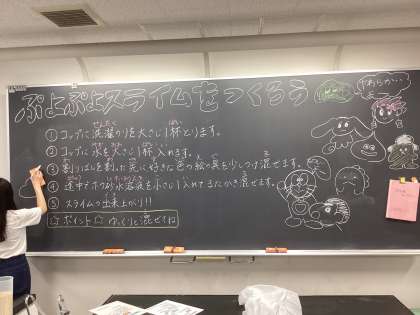 ぷよぷよスライムをつくろう
① コップに洗濯のりを大さじ1杯とります。
② コップに水を大さじ1杯入れます。
③ 割りばしを割った先に好きな色の絵の具を少しつけ混ぜます。
④ 途中でホウ砂水溶液を小さじ1入れてまたかき混ぜます。
⑤ スライムの出来上がり!!
☆ポイント☆ ゆっくりと混ぜてね
やわらかい